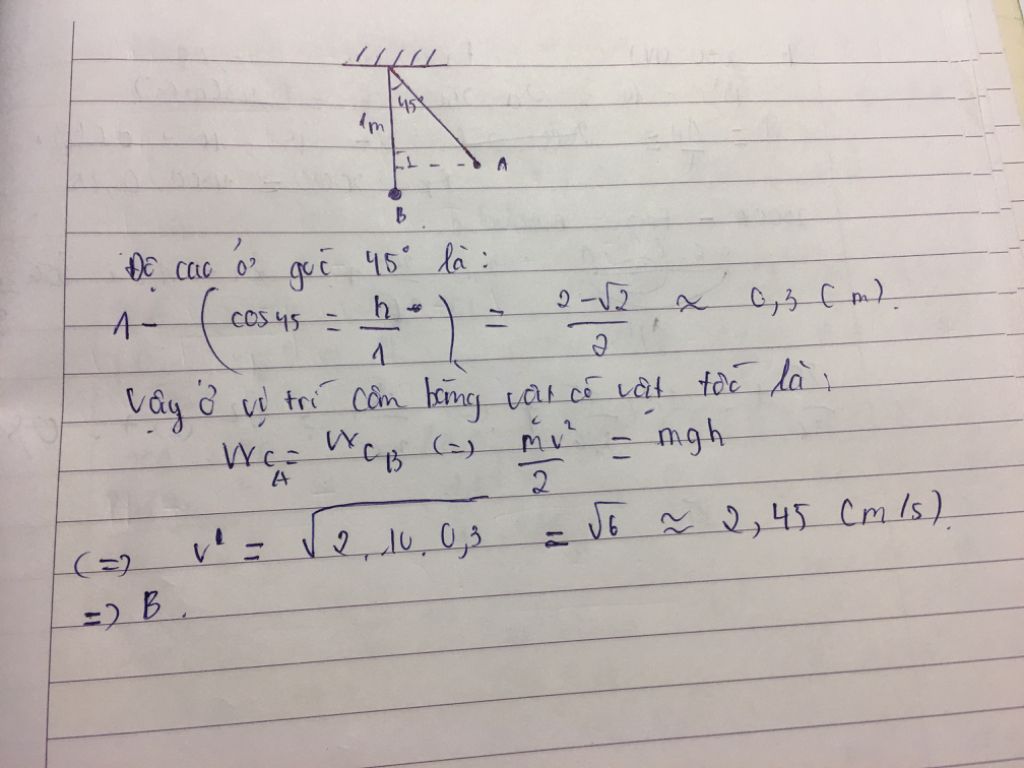 45°
1m
A
B
Độ cao ở góc 45° là:
1 - (cos45 = h/1) = (2-√2)/2 ≈ 0,3 (m).
Vậy ở vị trí cân bằng vật có vật tốc là:
W_CA = W_CB (=) mv²/2 = mgh
(=) v' = √2.10.0,3 = √6 ≈ 2,45 (m/s).
=) B.